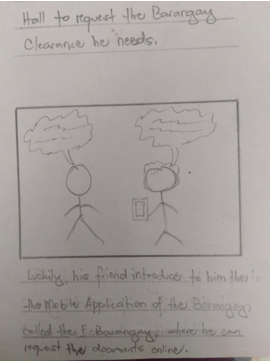 Hall to request the Barangay
Clearance he needs.
Luckily, his friend introduce to him the
the Mobile Application of the Barangay,
called the E-Barangay, where he can
request the documents online.